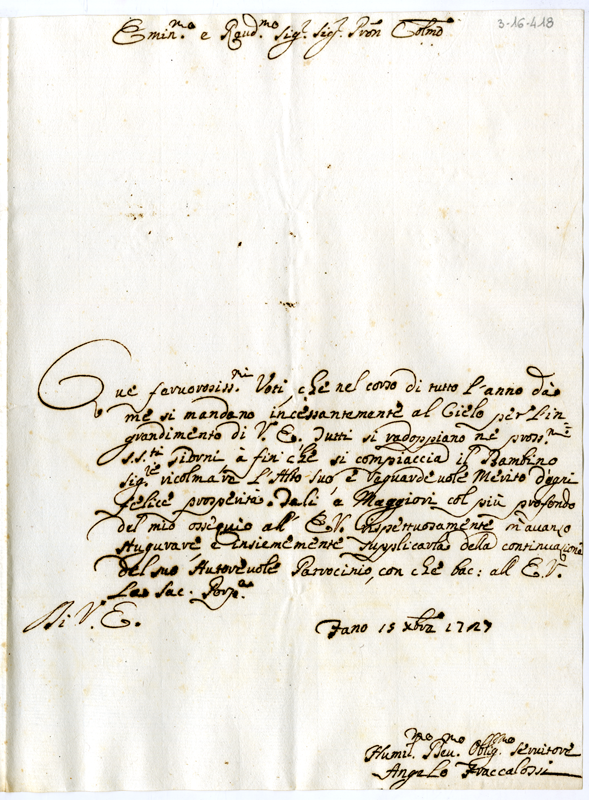 3-16-418
Emin.mo e Rdud.mo Sig.r Sig.r Pron Colmo
Que' feruorosiss.mi Voti che nel corso di tutto l'anno dà
me si mandano incessantemente al Cielo per l'in
grandimento di V. E. Tutti si radoppiano ne' pross.mi
s.s.ti Giorni à fin che si compiaccia il Bambino
Sig.re ricolmare l'Alto suo e raguardeuole Merito d'ogni
felice prosperità. Tali, e Maggiori col più profondo
del mio ossequio all' E.V. rispettuosamente m'auanzo
Augurare e insiememente supplicarla della continuazione
del suo Autoreuole Patrocinio, con che bac: all E.V.
La Sac. Porp.ra
Di V. E.
Fano 15 xbre 1727
Humil.mo Deu.mo Oblig.mo Seruitore
Angelo Fraccalossi